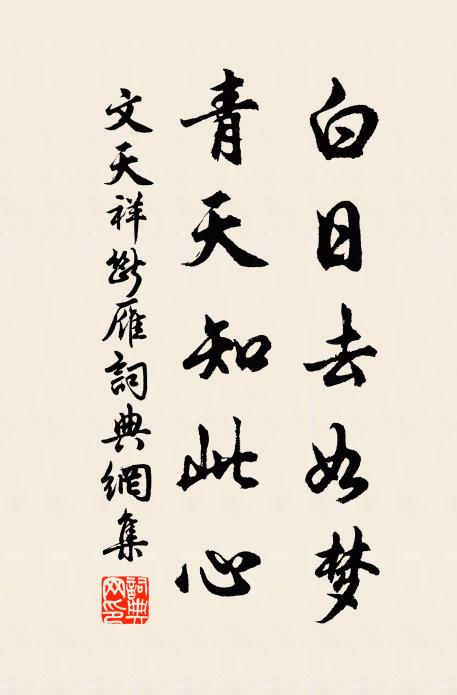 白日去如梦
青天知此心
文天祥断雁詞典網集
詞典网印